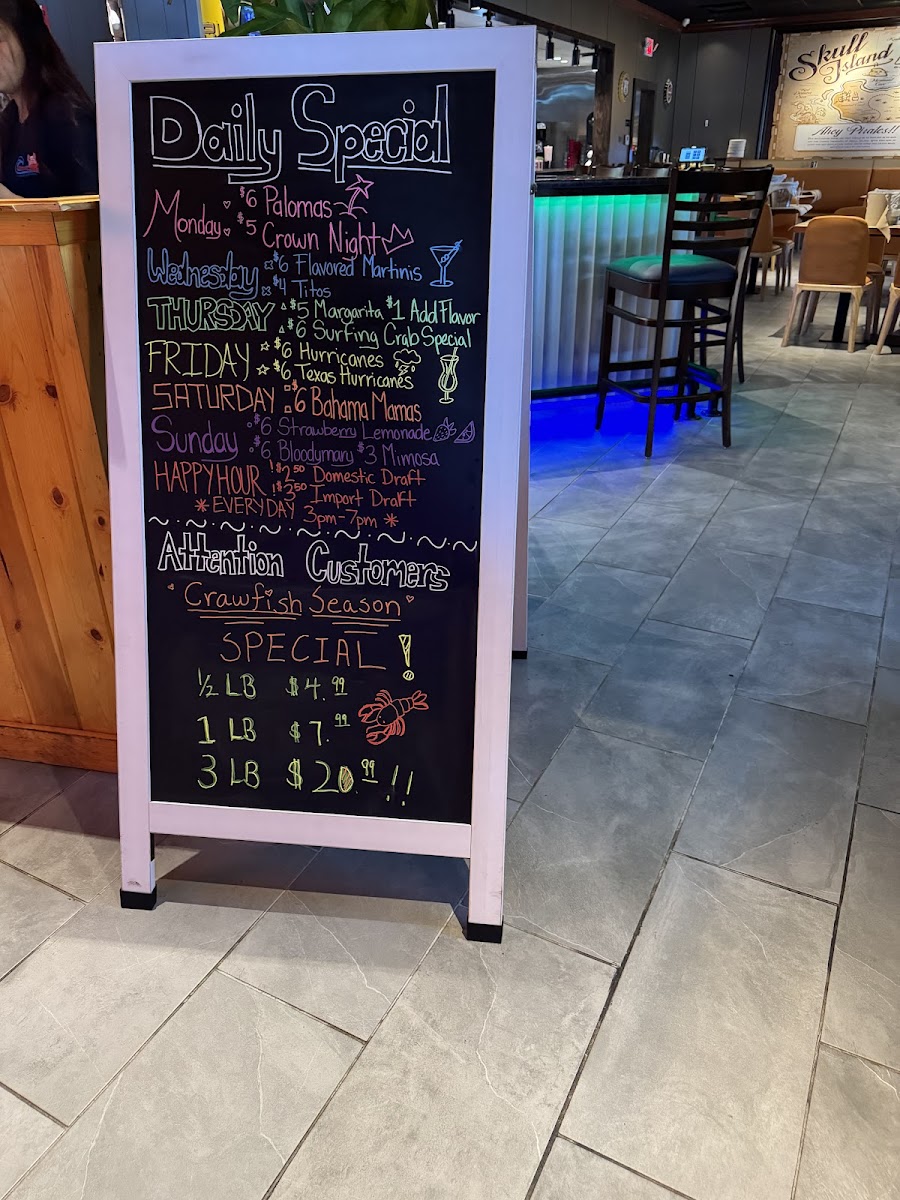 Daily Special
Monday $6 Palomas
$5 Crown Night
Wednesday $6 Flavored Martinis
$4 Titos
THURSDAY $5 Margarita $1 Add Flavor
$6 Surfing Crab Special
FRIDAY $6 Hurricanes
$6 Texas Hurricanes
SATURDAY $6 Bahama Mamas
Sunday $6 Strawberry Lemonade
$6 Bloodymary $3 Mimosa
HAPPY HOUR $2.50 Domestic Draft
$3.50 Import Draft
*EVERYDAY 3pm-7pm*
Attention Customers
Crawfish Season
SPECIAL!
1/2 LB $4.99
1 LB $7.99
3 LB $20.99!!
Skull
Island
Ahoy Pirates!!
EXIT